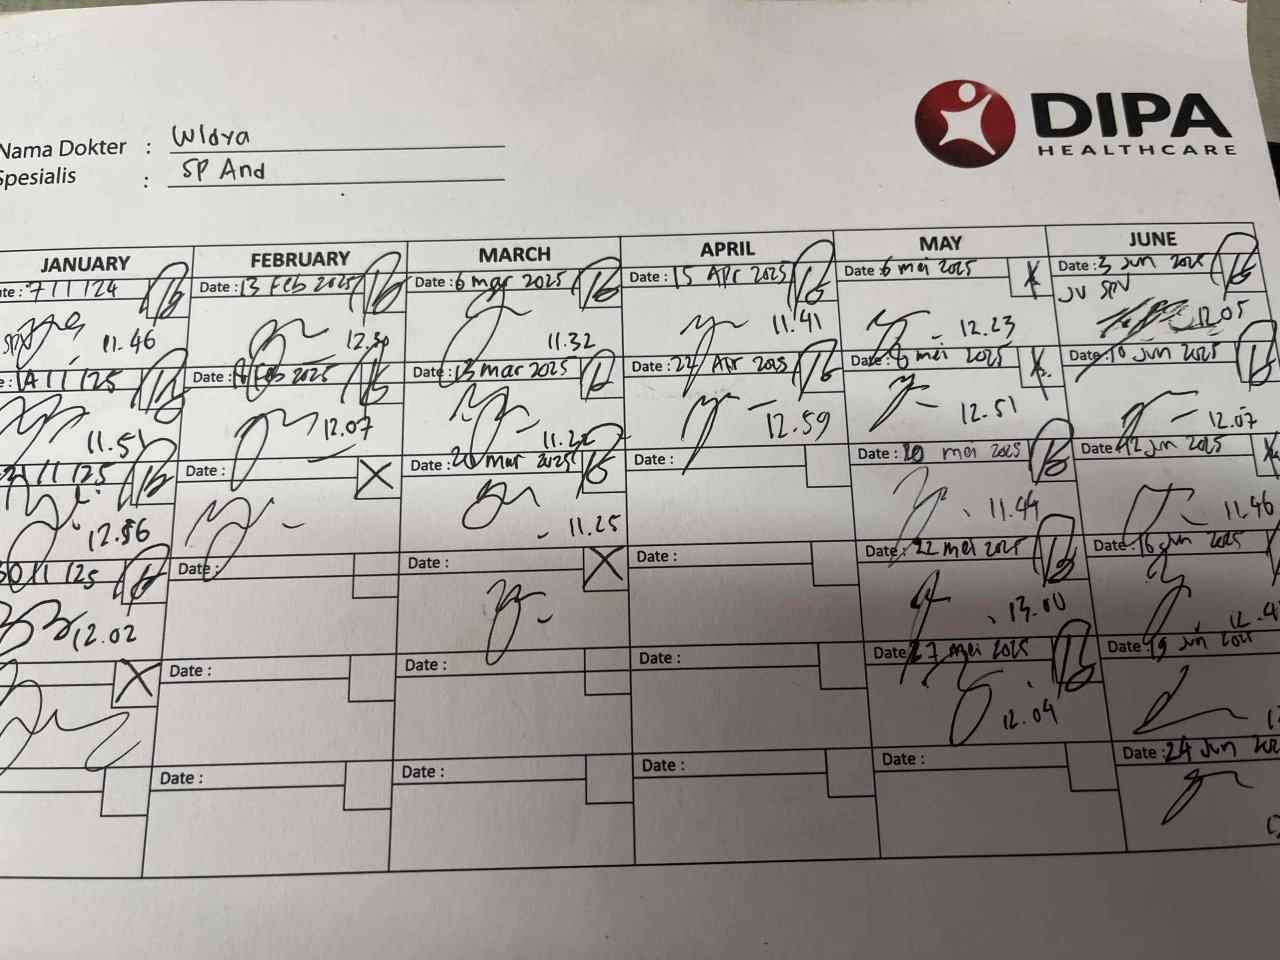 DIPA
HEALTHCARE
Nama Dokter : Widya
Spesialis : SP And
JANUARY FEBRUARY MARCH APRIL MAY JUNE
te : 7/1/24 Date : 13 Feb 2025 Date : 6 mar 2025 Date : 15 Apr 2025 Date : 6 mei 2025 Date : 3 Jun 2025
JV SPV
11.46 11.32 11.41 12.23 12.05
e : 14/1/25 Date : Feb 2025 Date : 13 mar 2025 Date : 22 Apr 2025 Date : 8 mei 2025 Date : 10 Jun 2025
11.51 12.07 11.22 12.59 12.51 12.07
21/1/25 Date : Date : 20 Mar 2025 Date : Date : 20 mei 2025 Date : 12 Jun 2025
12.56 11.25 11.44 11.46
30/1/25 Date : Date : Date : Date : 22 mei 2025 Date : 16 Jun 2025
12.02 13.00 12.4
Date : Date : Date : Date : 27 mei 2025 Date : 19 Jun 2025
12.04
Date : Date : Date : Date : Date : 24 Jun 202